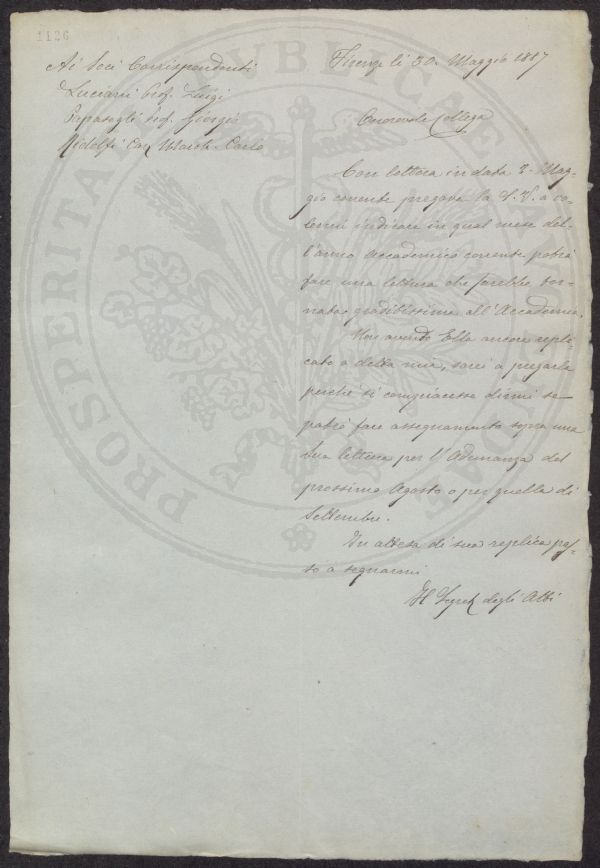 1126
Ai Soci Corrispondenti
Luciani Prof. Luigi
Papasogli prof. Giorgio
Ridolfi Cav. March. Carlo
Firenze li 30. Maggio 1887
Onorevole Collega
Con lettera in data 2. Mag-
gio corrente pregava la S. V. a vo-
lermi indicare in qual mese del-
l'anno Accademico corrente potrà
fare una lettura che sarebbe tor-
nata graditissima all'Accademia.
Non avendo Ella ancora repli-
cato a detta mia, sarei a pregarla
perchè si compiacesse dirmi se
potrò fare assegnamento sopra una
Sua lettura per l'Adunanza del
prossimo Agosto o per quella di
Settembre.
In attesa di sua replica pas-
so a segnarmi
Il Segret. degli Atti
PROSPERITATI PUBLICAE AUGENDAE